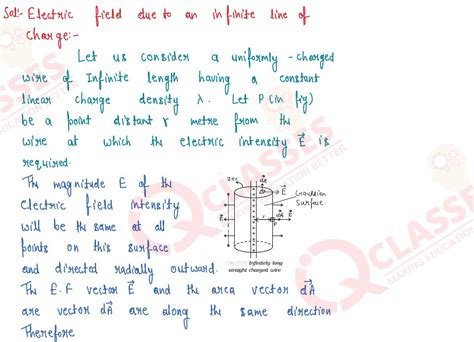 Sol:- Electric field due to an infinite line of
charge:-
Let us consider a uniformly - charged
wire of Infinite length having a constant
linear charge density λ. Let P (in fig)
be a point distant r metre from the
wire at which the electric intensity E⃗ is
required.
The magnitude E of the
Electric field intensity
will be the same at all
points on this surface
and directed radially outward.
The E.F vector E⃗ and the area vector dA⃗
are vector dA⃗ are along the same direction
Therefore
dA⃗
E⃗
Gaussian
Surface
r
P
dA⃗
Infinitely long
straight charged wire
IQ CLASSES
MAKING EDUCATION BETTER